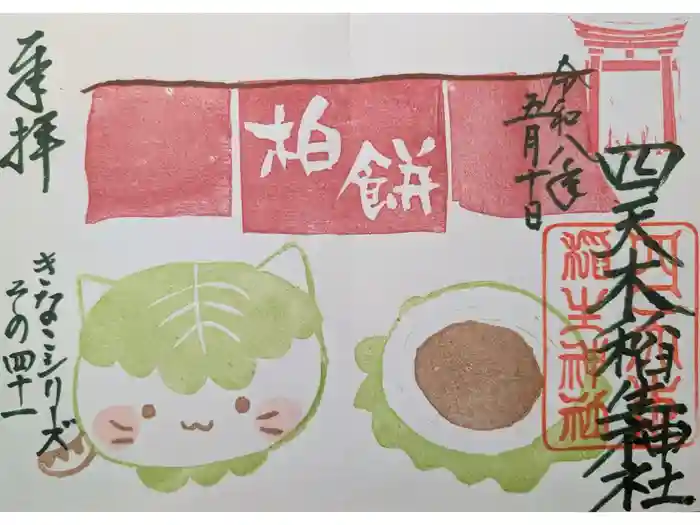 奉拝
柏餅
令和八年
五月十日
四天木稲生神社
四天木
稲生神社
きなこシリーズ
その四十一